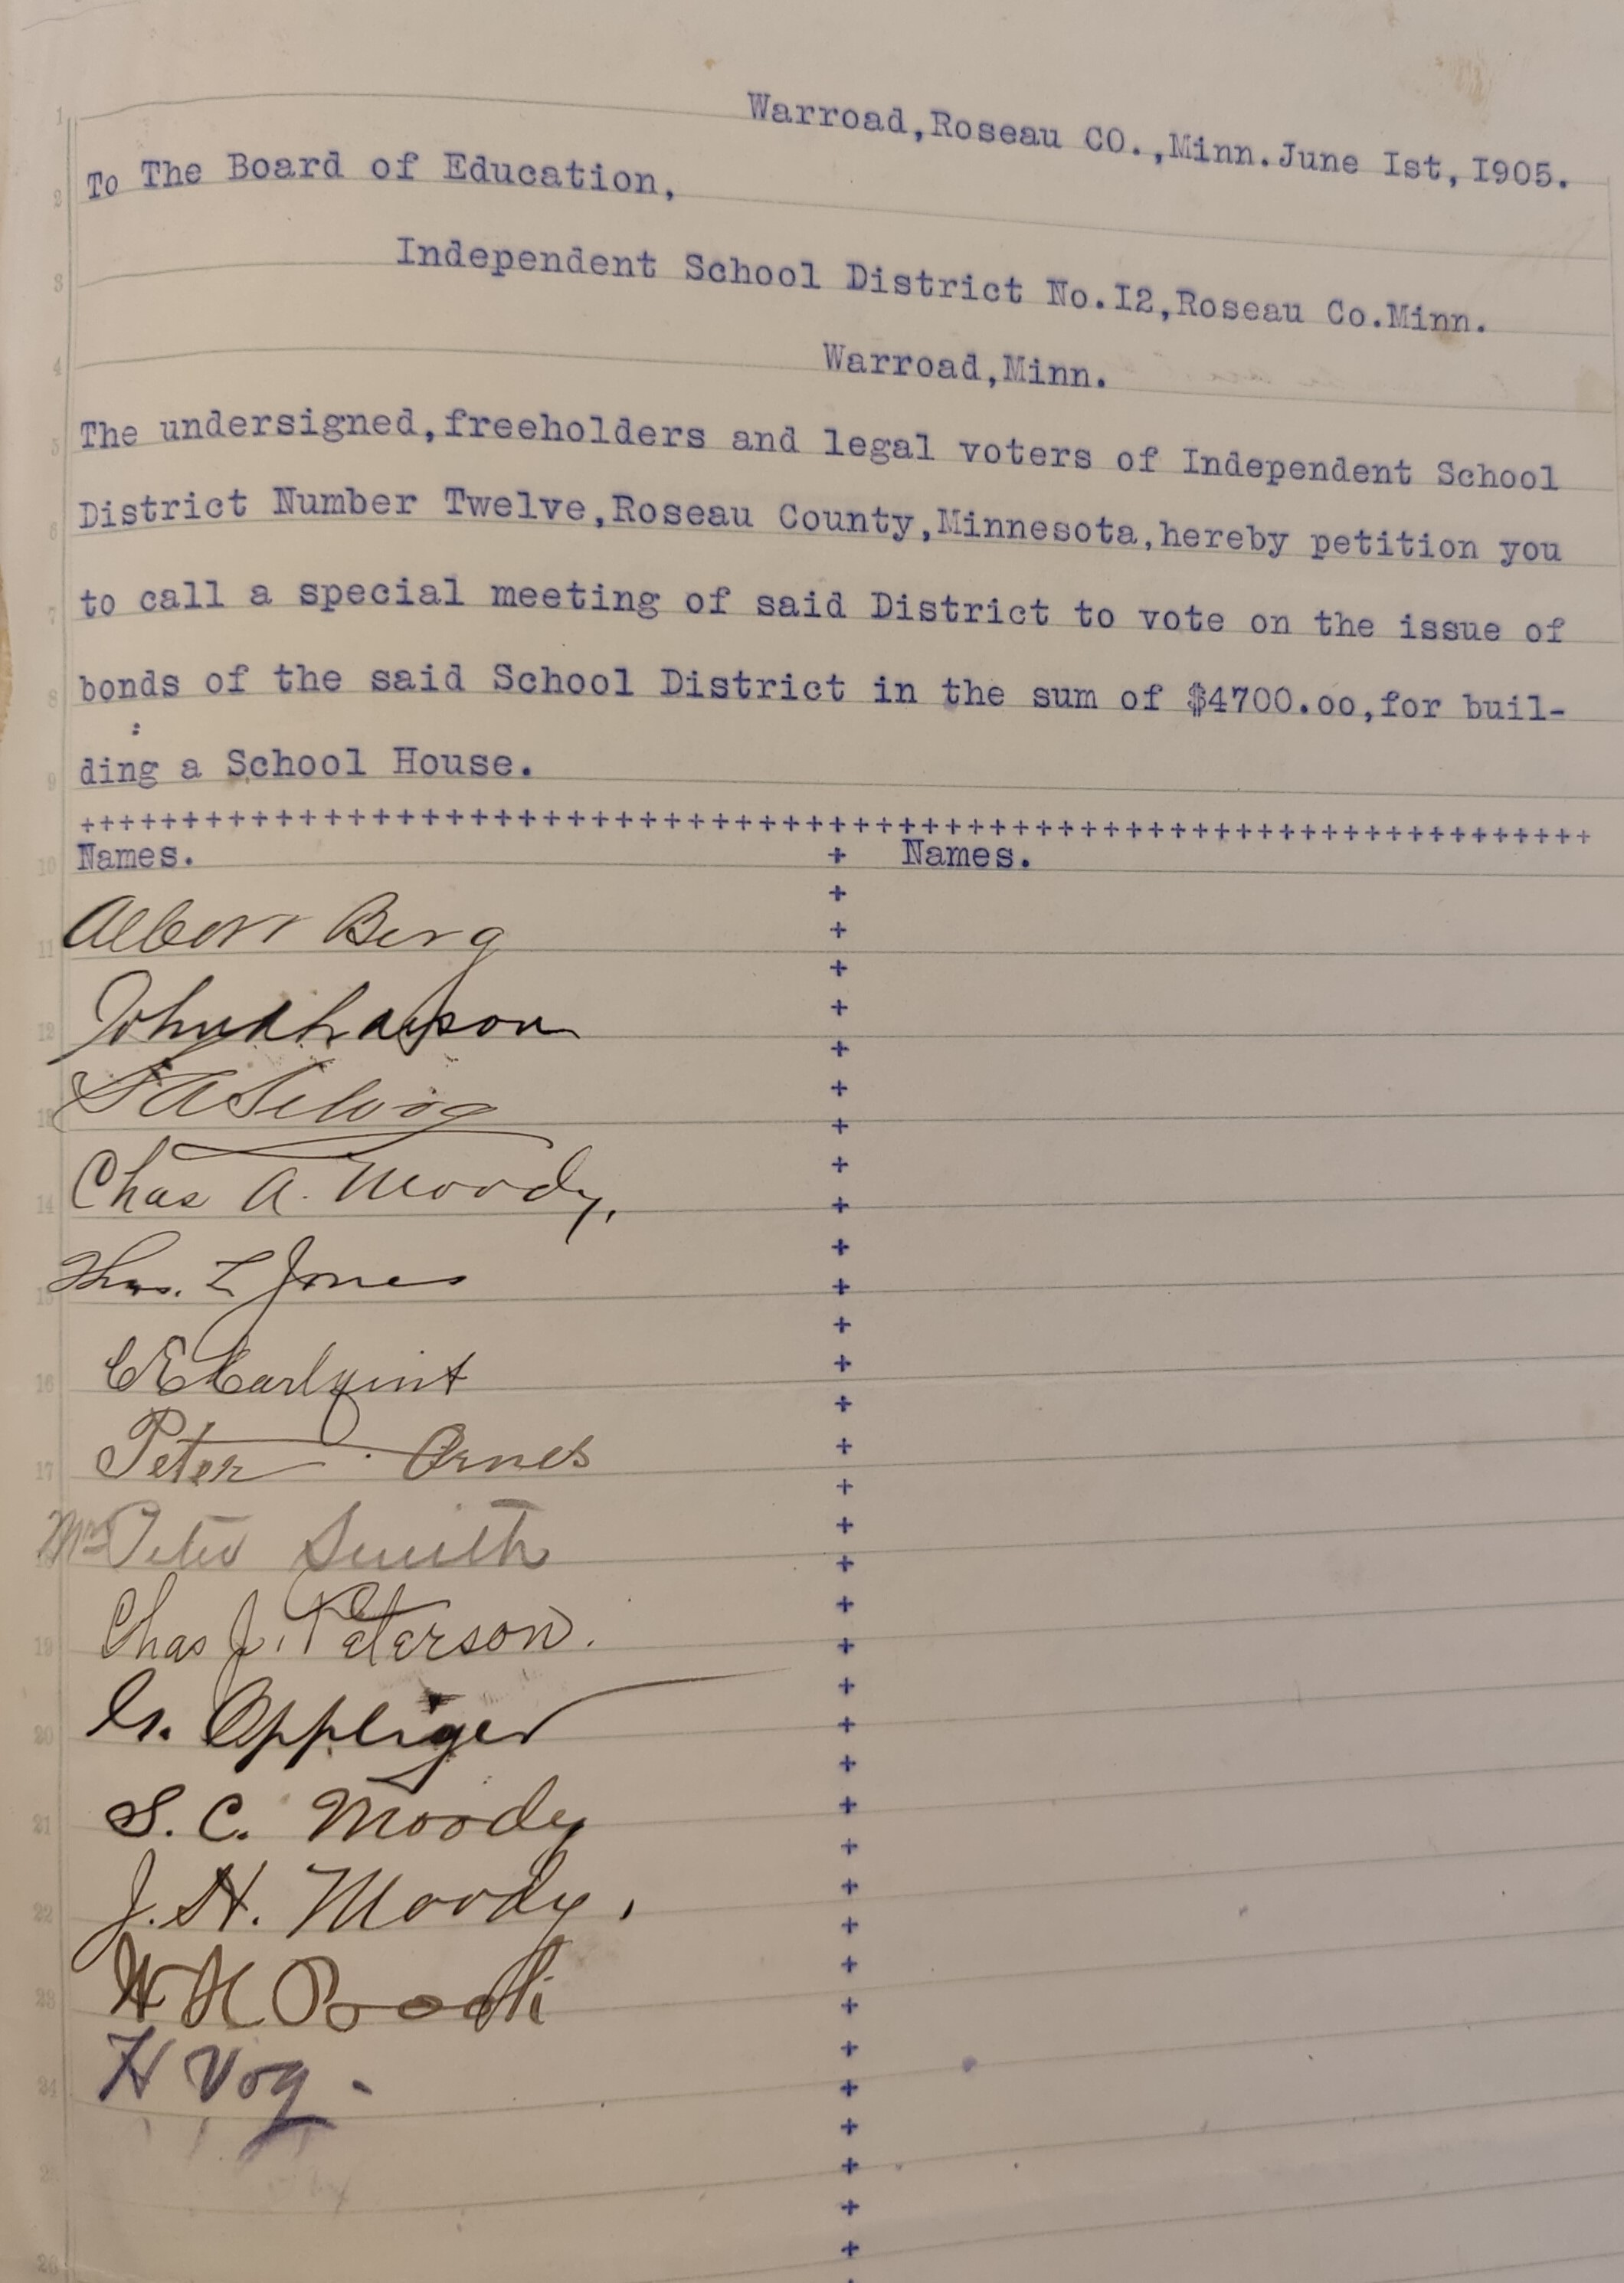 Warroad,Roseau CO.,Minn.June Ist,I905.
To The Board of Education,
Independent School District No.I2,Roseau Co.Minn.
Warroad,Minn.
The undersigned,freeholders and legal voters of Independent School
District Number Twelve,Roseau County,Minnesota,hereby petition you
to call a special meeting of said District to vote on the issue of
bonds of the said School District in the sum of $4700.oo,for buil-
ding a School House.
Names. + Names.
Albert Berg
John
S A Selvog
Chas A. Moody,
Thos. L Jones
C E Carlquint
Peter Ornes
Mr Peter Smith
Chas J. Peterson.
G. Oppliger
S. C. Moody
J. H. Moody,
H Vog
1
2
3
4
5
6
7
8
9
10
11
12
13
14
15
16
17
19
20
21
22
23
24
25
26